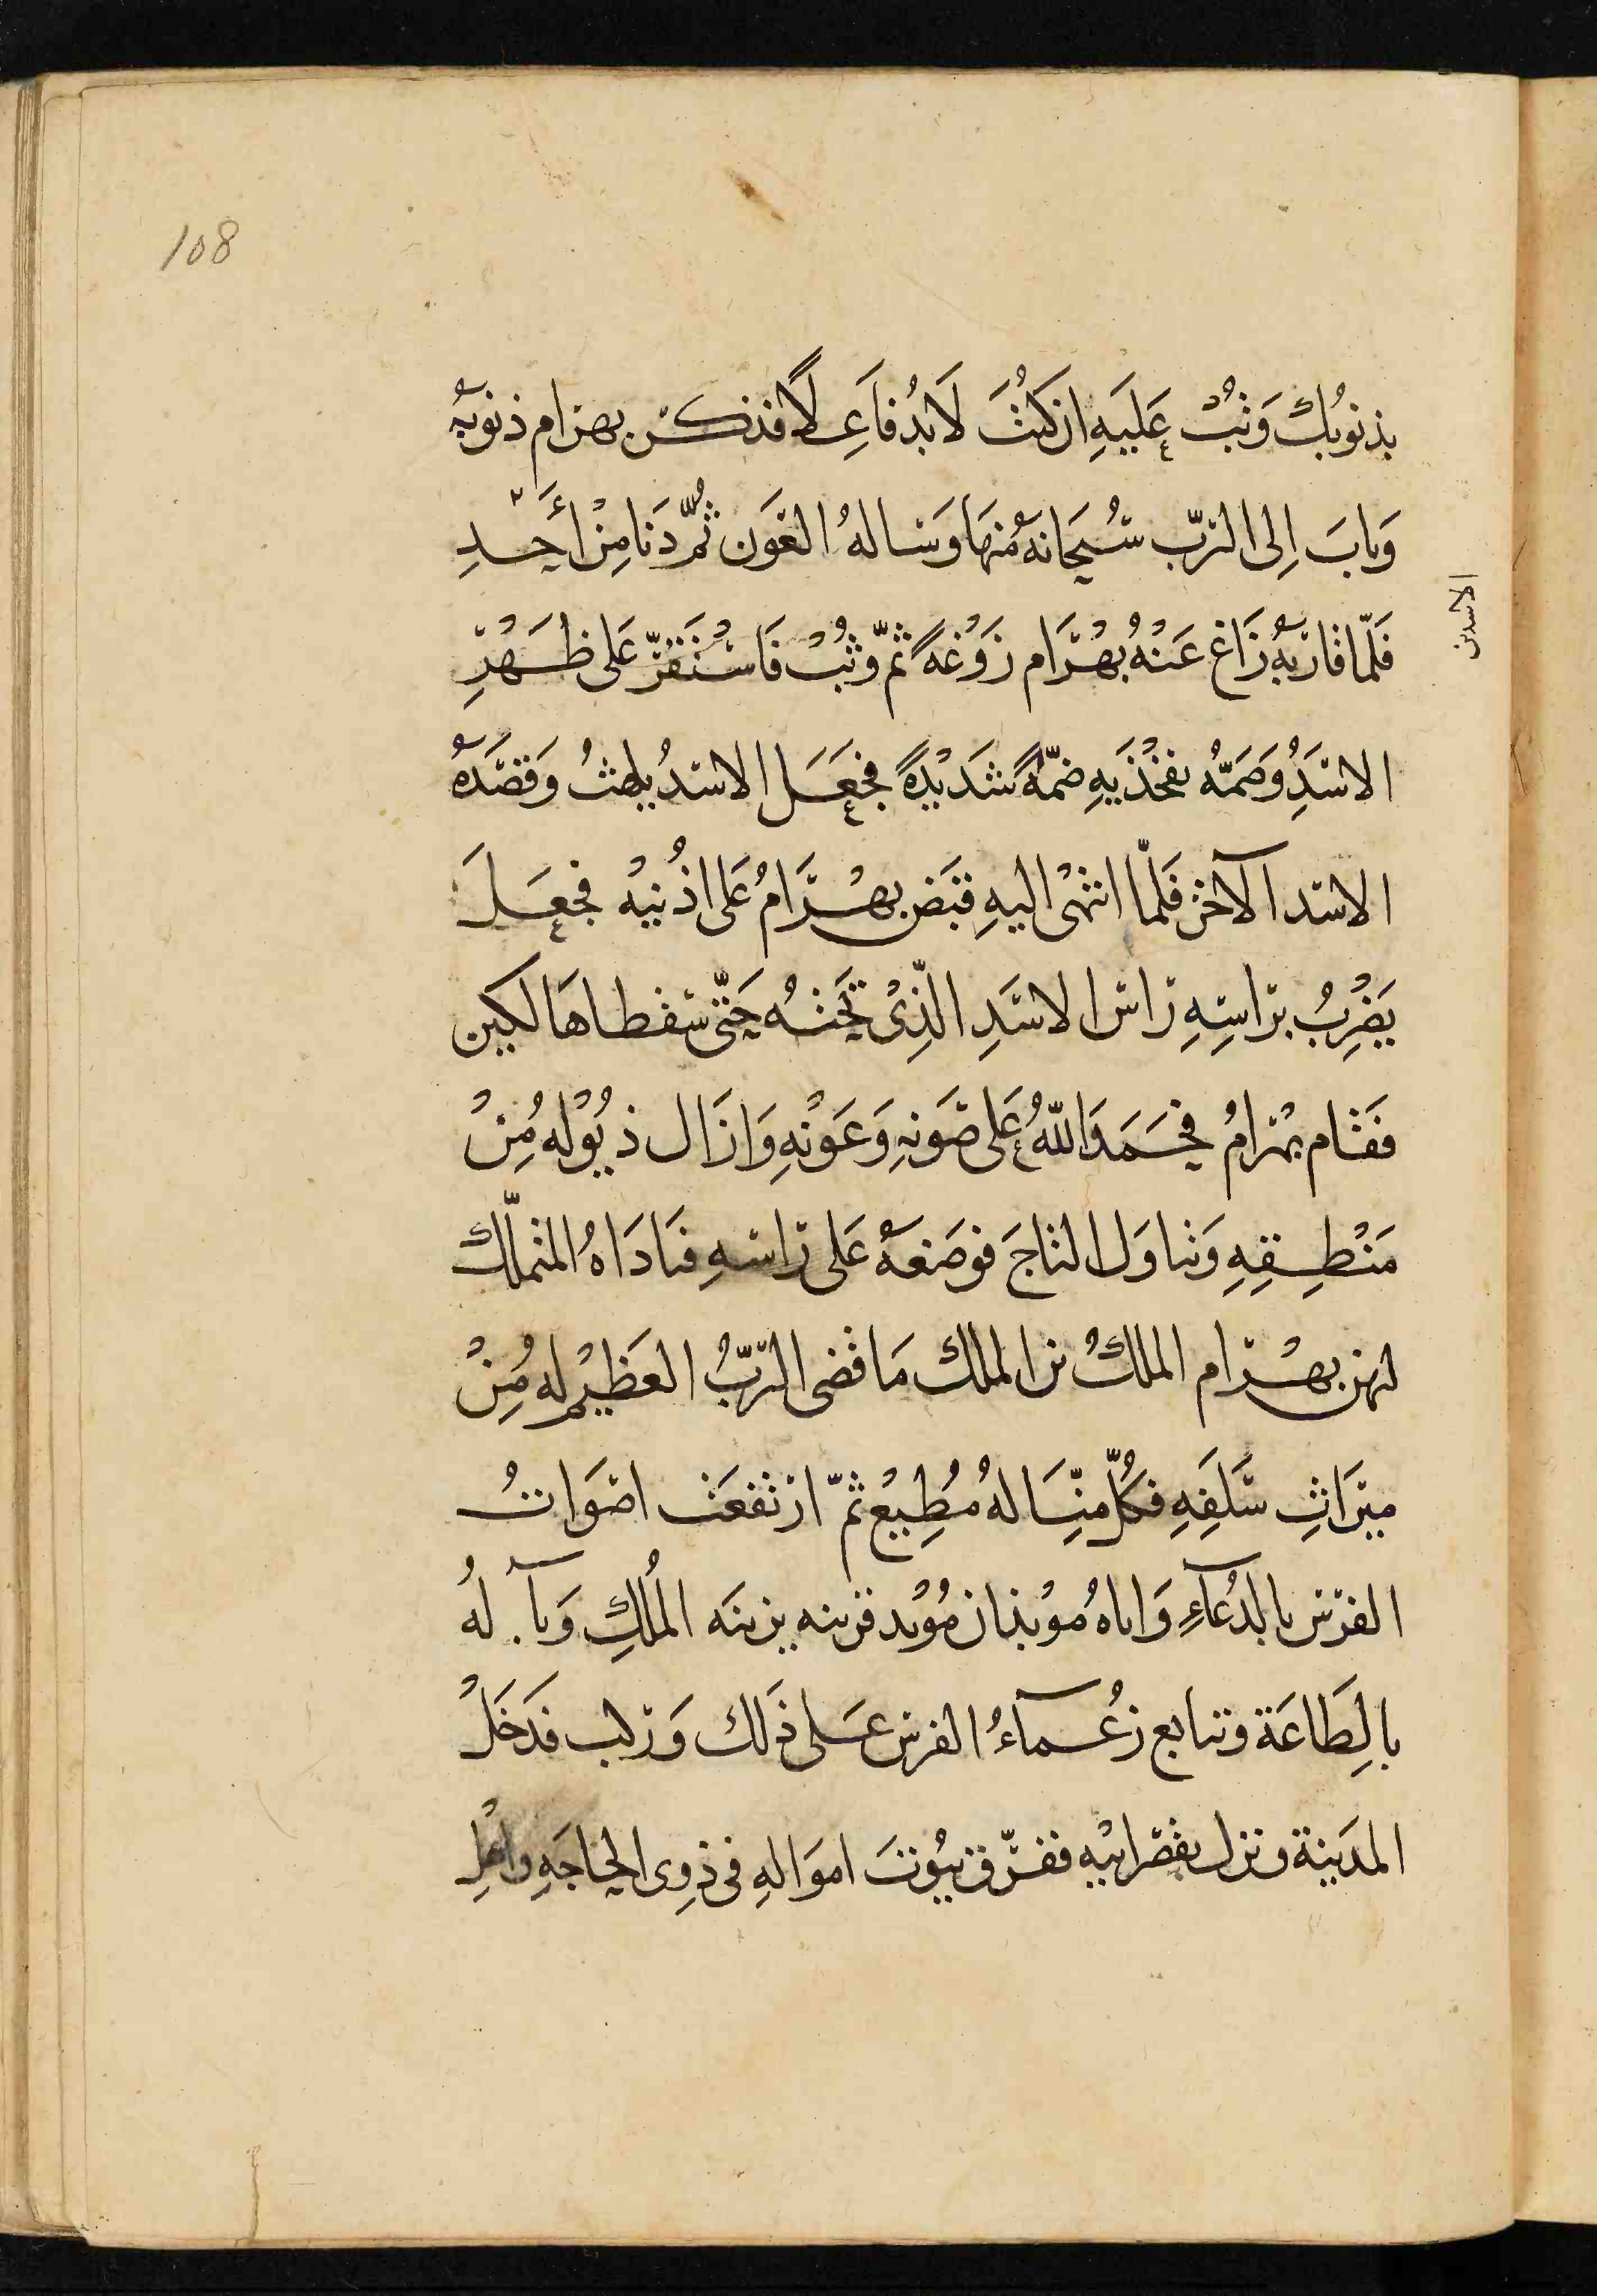 108
بذنوبك وَتبْ عَليَهِ ان كنُتَ لَابدُ فاَعِلاً فذكر بهرام ذنوبهُ
وَتابَ اِلى الرّب سُبحَانهُ مُنهَا وَسالهُ العَون ثُمّ دَنا مِنْ اَحَدِ
الاسدين
فَلمّا قاربهُ زَاغ عَنْهُ بهْرَام زَوْغةً ثمّ وثبْ فَاسْتَقرّ عَلى ظهْرِ
الاسَدِ وَضمّهُ بفخْذَيهِ ضمّةً شدَيْدةً فجعَلَ الاسدُ يلهثُ وَقصَدهُ
الاسد الآخر فَلمّا انتهى اليهِ قبَض بهْرَامُ عَلى اذُنيْه فجعَلَ
يَضْرِبُ برَاسِهِ رَاس الاسَدِ الّذِىْ تحَتهُ حَتّى سقطا هَالكين
فَقام بهْرامُ فحَمَدَ اللّهُ عَلى صَونهِ وَعَوْنهِ وَازَال ذيُوْله مُنْ
مَنْطِقِهِ وَتناوَل التاجَ فوضَعهُ عَلى رَاسهِ فنَادَاهُ المتملّك
لهن بهْرام الملكُ من الملك مَا قضى الرّبُّ العَظِيْم له مُنْ
ميَراثِ سَلَفِهِ فكُلّ منّا لهُ مُطِيعْ ثمّ ارْتفعَت اصْوَاتُ
الفرس بالدعُآءِ وَاتاهُ موْبذان مُوْبد فزينه بزينَه المُلكِ وَبآ.لهُ
بالِطَاعَة وتتابع زعُمآءُ الفرس عَلى ذَلك وَركب فدَخَلْ
المدَينة ونزل بقصْر ابيْه ففرّق بيُوْتَ اموَالهِ فى ذوِى الحاجَهِ واهْلِ